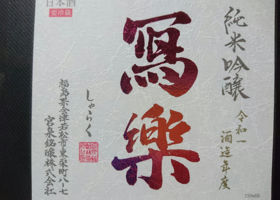 日本酒
要冷蔵
純米吟醸
令和一
酒造年度
寫樂
しゃらく
福島県会津若松市東栄町八-七
宮泉銘醸株式会社